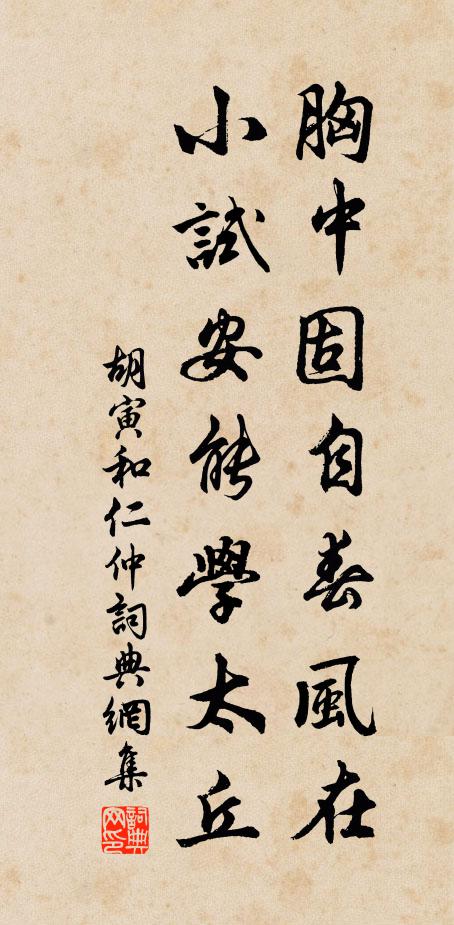 胸中固自春風在
小試安能學太丘
胡寅和仁仲詞典網集
詞典网印